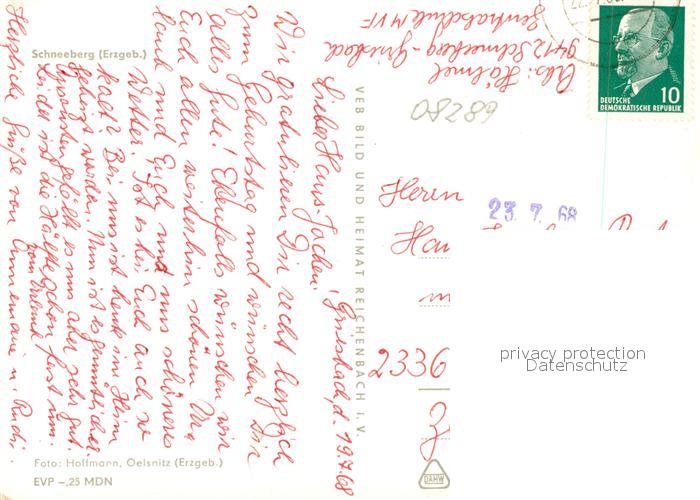 Schneeberg (Erzgeb.)
Griesbach, d. 19.7.68
Lieber Hans-Jochen!
Wir gratulieren Dir recht herzlich
zum Geburtstag und wünschen Dir
alles Gute! Ebenfalls wünschen wir
Euch allen weiterhin schönen
und Euch und uns schöneres
Wetter. Ist es bei Euch auch so
kalt? Bei uns ist heute im Heim
geheizt worden. Nun ist es gemütlicher.
gefällt es uns aber sehr gut.
Leider ist die Hälfte schon fast um.
vom Urlaub
Herzliche Grüße von Annemarie u. Rudi.
Foto: Hoffmann, Oelsnitz (Erzgeb.)
EVP -,25 MDN
VEB BILD UND HEIMAT REICHENBACH I. V.
Abs: Hähnel
9412 Schneeberg-Griesbach
Zentralschule IV VF
08289
DEUTSCHE
DEMOKRATISCHE REPUBLIK
10
Herrn
23. 7. 68
Han
2336
DAHW
privacy protection
Datenschutz